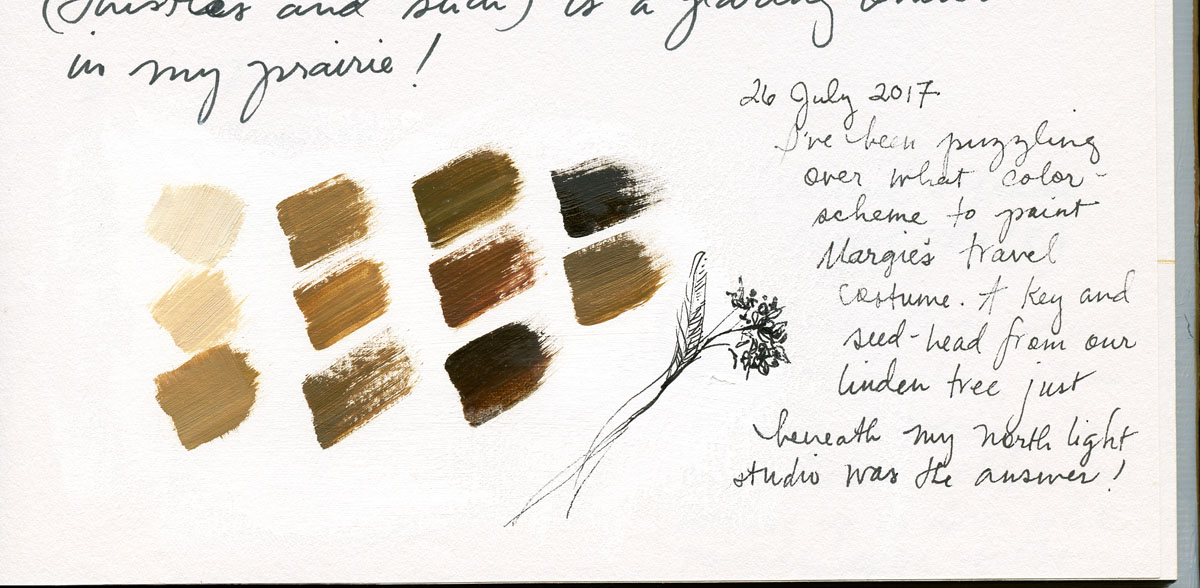 (thistles and such) is a glaring
in my prairie!
26 July 2017.
I've been puzzling
over what color-
scheme to paint
Margie's travel
costume. A key and
seed-head from our
linden tree just
beneath my north light
studio was the answer!